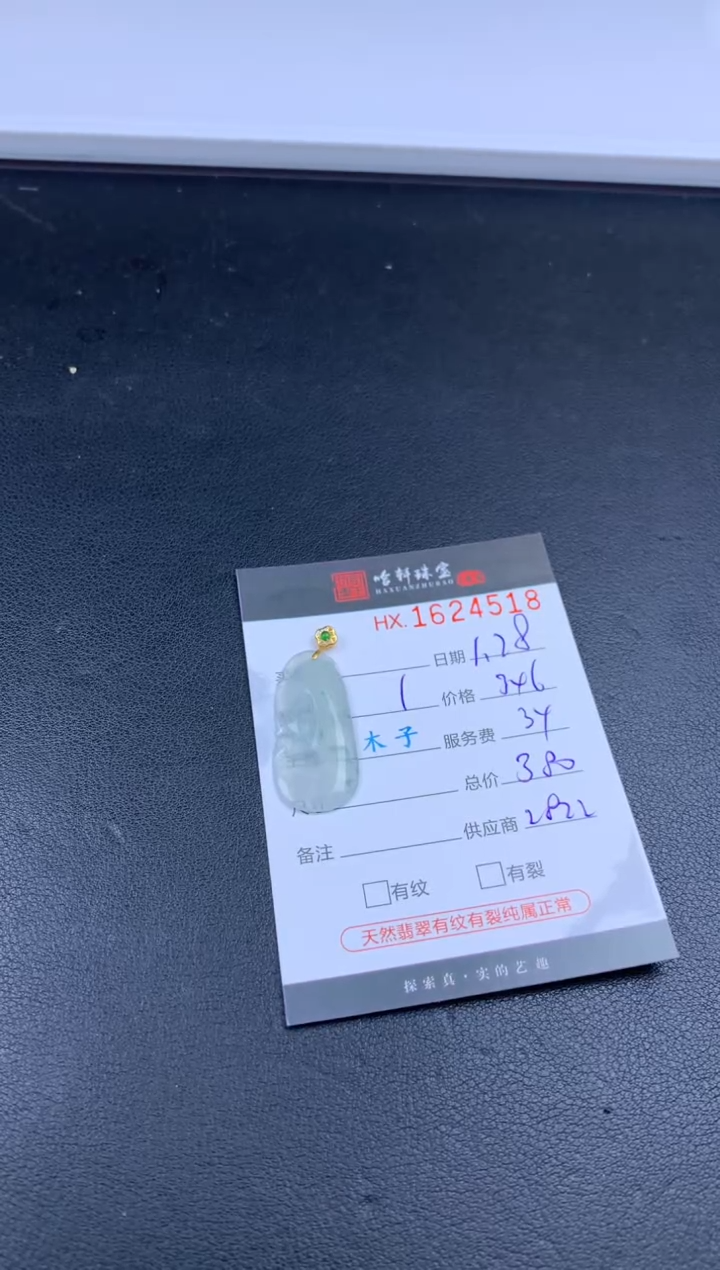 哈轩珠宝
HAXUANZHUBAO
HX.1624518
日期 1.28
1 价格 346
木子 服务费 34
总价 380
备注 供应商 2822
有纹 有裂
天然翡翠有纹有裂纯属正常
探索真·实的艺趣